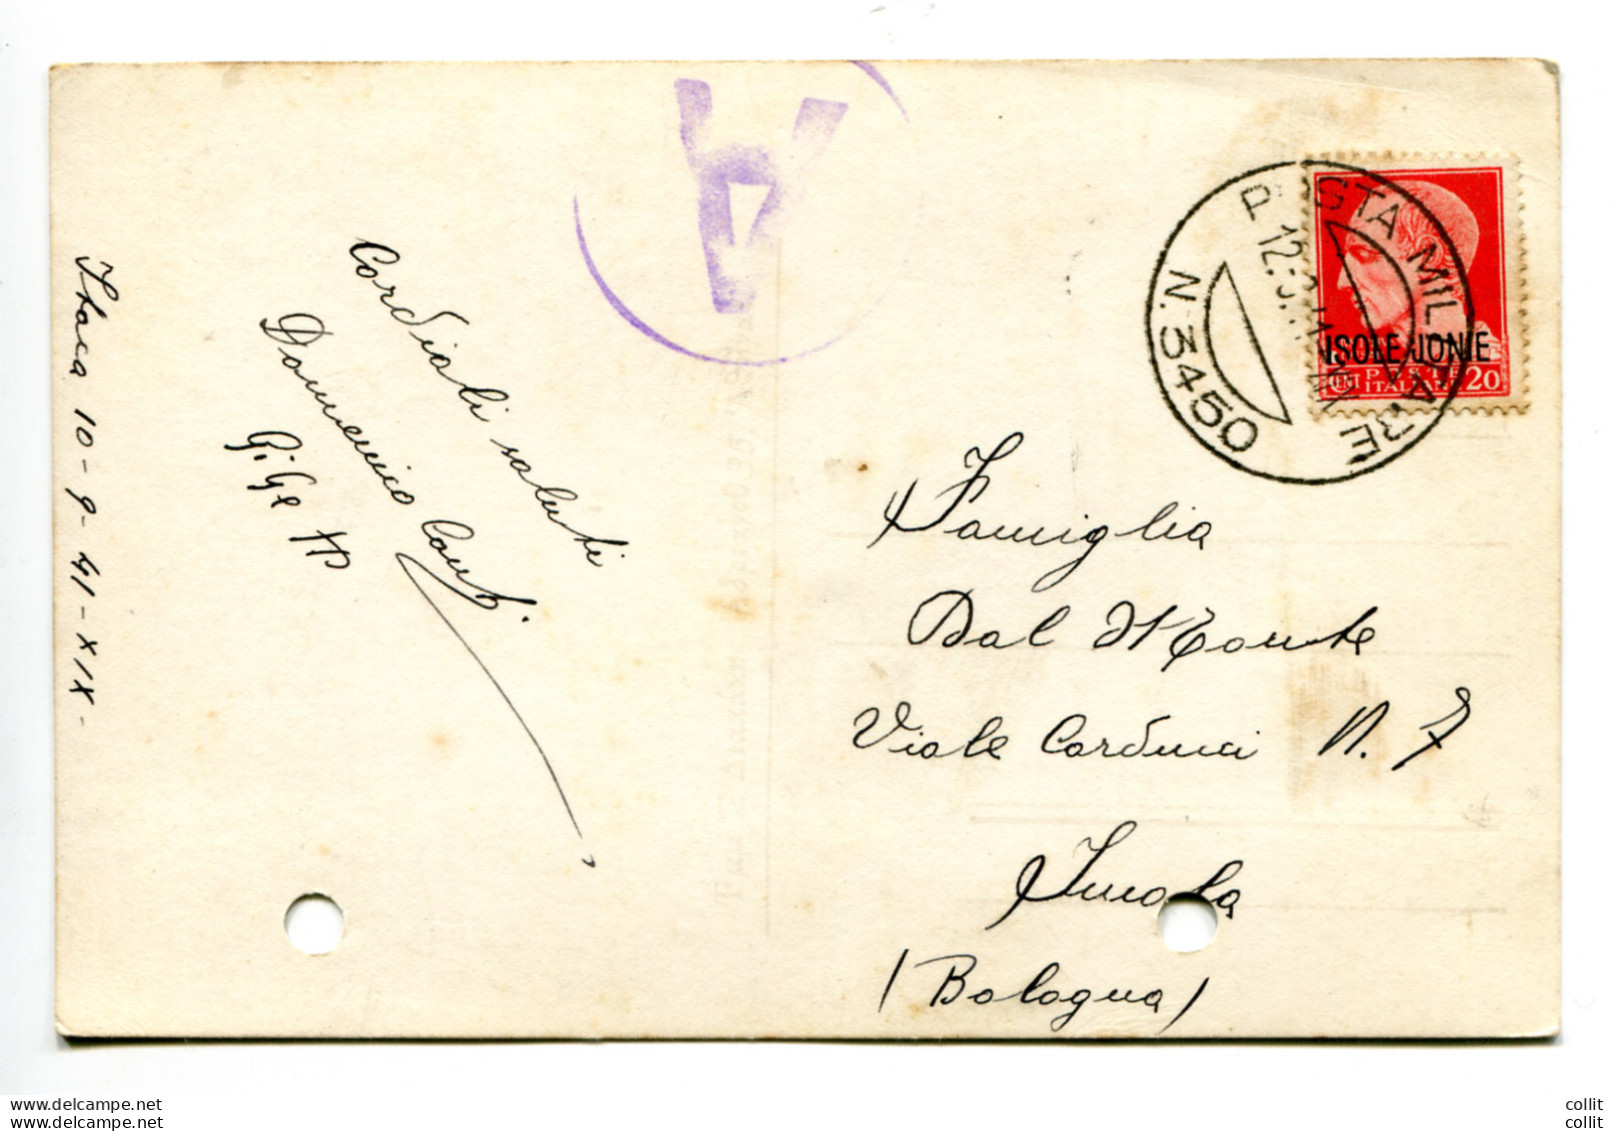 Itaca 10-9-41-XIX-
Cordiali saluti
Domenico
POSTA MILITARE
N. 3450
ISOLE JONIE
POSTE
CENT ITALIANE 20
A
Famiglia
Dal Monte
Viale Carducci N. 7
Imola
(Bologna)
www.delcampe.net
www.delcampe.net
collit
collit